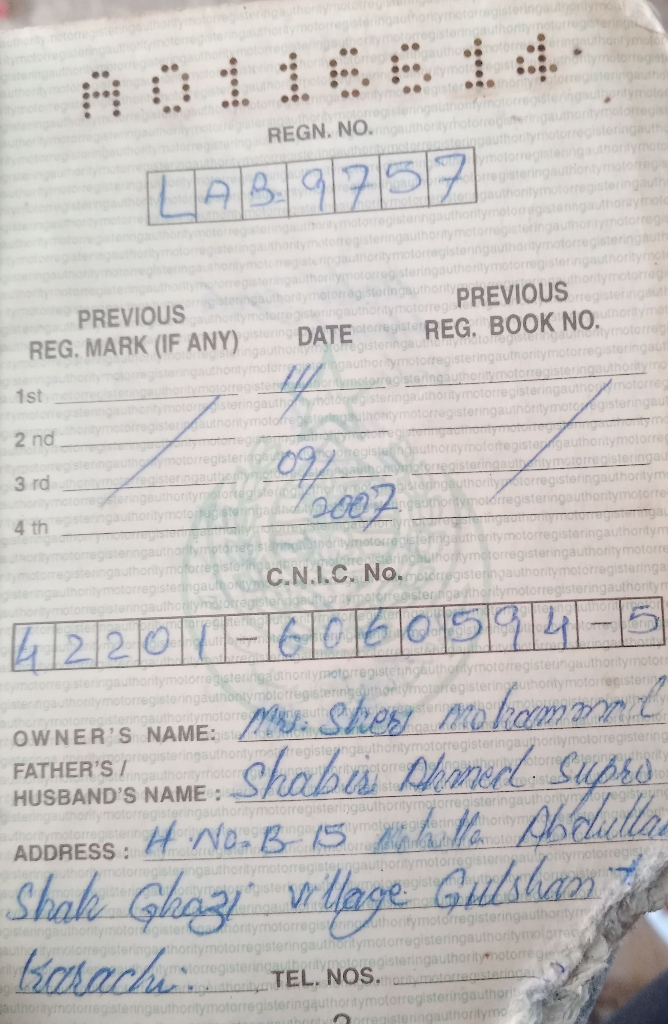 A0116614
REGN. NO.
LAB-9757
PREVIOUS
REG. MARK (IF ANY)
DATE
PREVIOUS
REG. BOOK NO.
1st
2 nd
3 rd
4 th
11/
09/
2007
C.N.I.C. No.
42201-6060594-5
OWNER'S NAME: Mr. Sher Mohammad
FATHER'S /
HUSBAND'S NAME : Shabir Ahmed Supro
ADDRESS : H.No. B-15 Abdullah
Shah Ghazi village Gulshan
Karachi.
TEL. NOS.